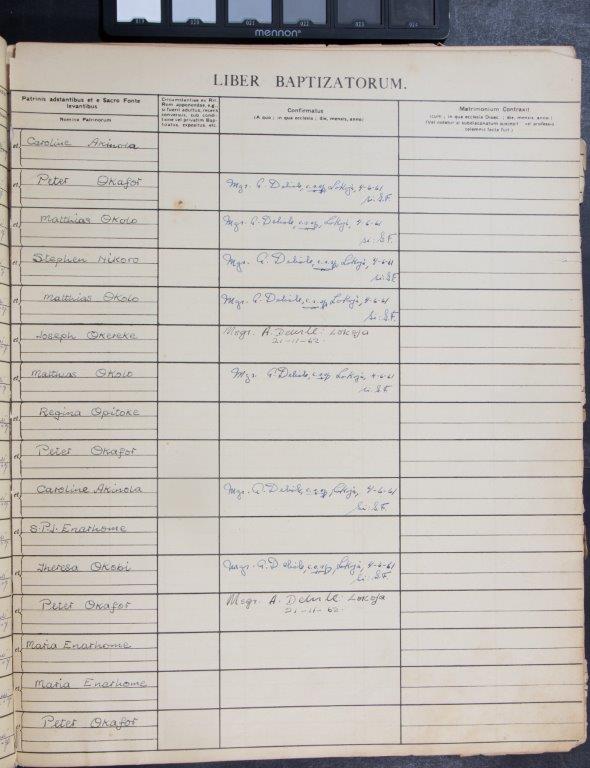 021
mennon
LIBER BAPTIZATORUM.
Patrinis adstantibus et e Sacro Fonte
levantibus
Nomina Patrinorum
Circumstantiae ex Rit.
Rom apponendae, e.g.,
si fuerit adultus, recens
conversus, sub condi-
tione vel privatim Bap-
tizatus, expositus, etc.
Confirmatus
(A quo; in qua ecclesia; die, mensis, anno)
Matrimonium Contraxit
(cum; in qua ecclesia Dioec.; die, mensis, anno.)
(Vel notetur si subdiaconatum suscepit vel professio
solemnis facta fuit)
Caroline Akinola
Peter Okafor Mgr. A. Delisle, c.s.sp, Lokoja, 4-6-61
Matthias Okolo Mgr. A. Delisle, c.s.sp, Lokoja, 4-6-61
Stephen Nikoro Mgr. A. Delisle, c.s.sp, Lokoja, 4-6-61
Matthias Okolo Mgr. A. Delisle, c.s.sp, Lokoja, 4-6-61
Joseph Okereke Msgr. A. Delisle: Lokoja
21-11-62.
Matthias Okolo Mgr. A. Delisle, c.s.sp, Lokoja, 4-6-61
Regina Opitoke
Peter Okafor
Caroline Akinola Mgr. A. Delisle, c.s.sp, Lokoja, 4-6-61
S.P.J. Enarhome
Theresa Okobi Mgr. A. Delisle, c.s.sp, Lokoja, 4-6-61
Peter Okafor Msgr. A. Delisle: Lokoja
21-11-62.
Maria Enarhome
Maria Enarhome
Peter Okafor